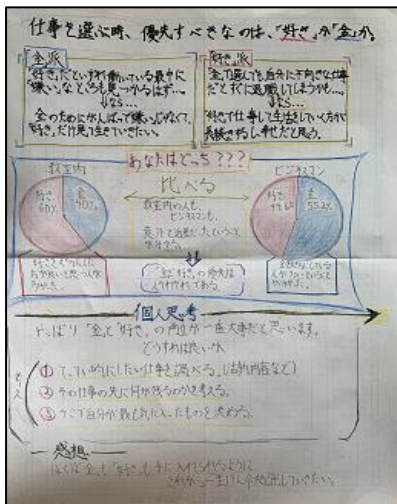 仕事を選ぶ時、優先すべきなのは、「好き」か「金」か。
金派
「好き」だといずれ働いている最中に
「嫌い」なところも見つかるはず…。
↓なら…
金のためにがんばって嫌いじゃなくて、
「好き」だけ見て生きていきたい。
好き派
「金」で選んでも、自分に不向きな仕事
だとすぐに退職してしまうかも…。
↓なら…
好きで仕事して生活していく方が
長続きするし幸せだと思う。
あなたはどっち???
教室内
好き 60%
金 40%
比べる
教室内の人も、
ビジネスマンも、
意外と
ビジネスマン
好き
金 55.2%
「金」「好き」の
個人思考
やっぱり「金」と「好き」の両立が一番大事だと思います。
どうすれば良いか
① てってい的にしたい仕事を調べる。
② その仕事の先に何が残るのかを考える。
③ そこで自分が最も気に入ったものを決める。
感想
ぼくは「金」も「好き」も手に入れられるように
これから